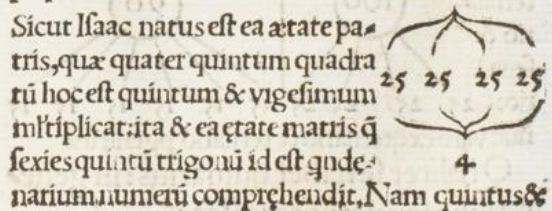 Sicut Isaac natus est ea ætate pa-
tris, quæ quater quintum quadra
tū hoc est quintum & vigesimum
mltiplicat: ita & ea ętate matris q̄
sexies quintū trigonū id est qnde-
narium numerū compręhendit, Nam quintus &
25 25 25 25
4